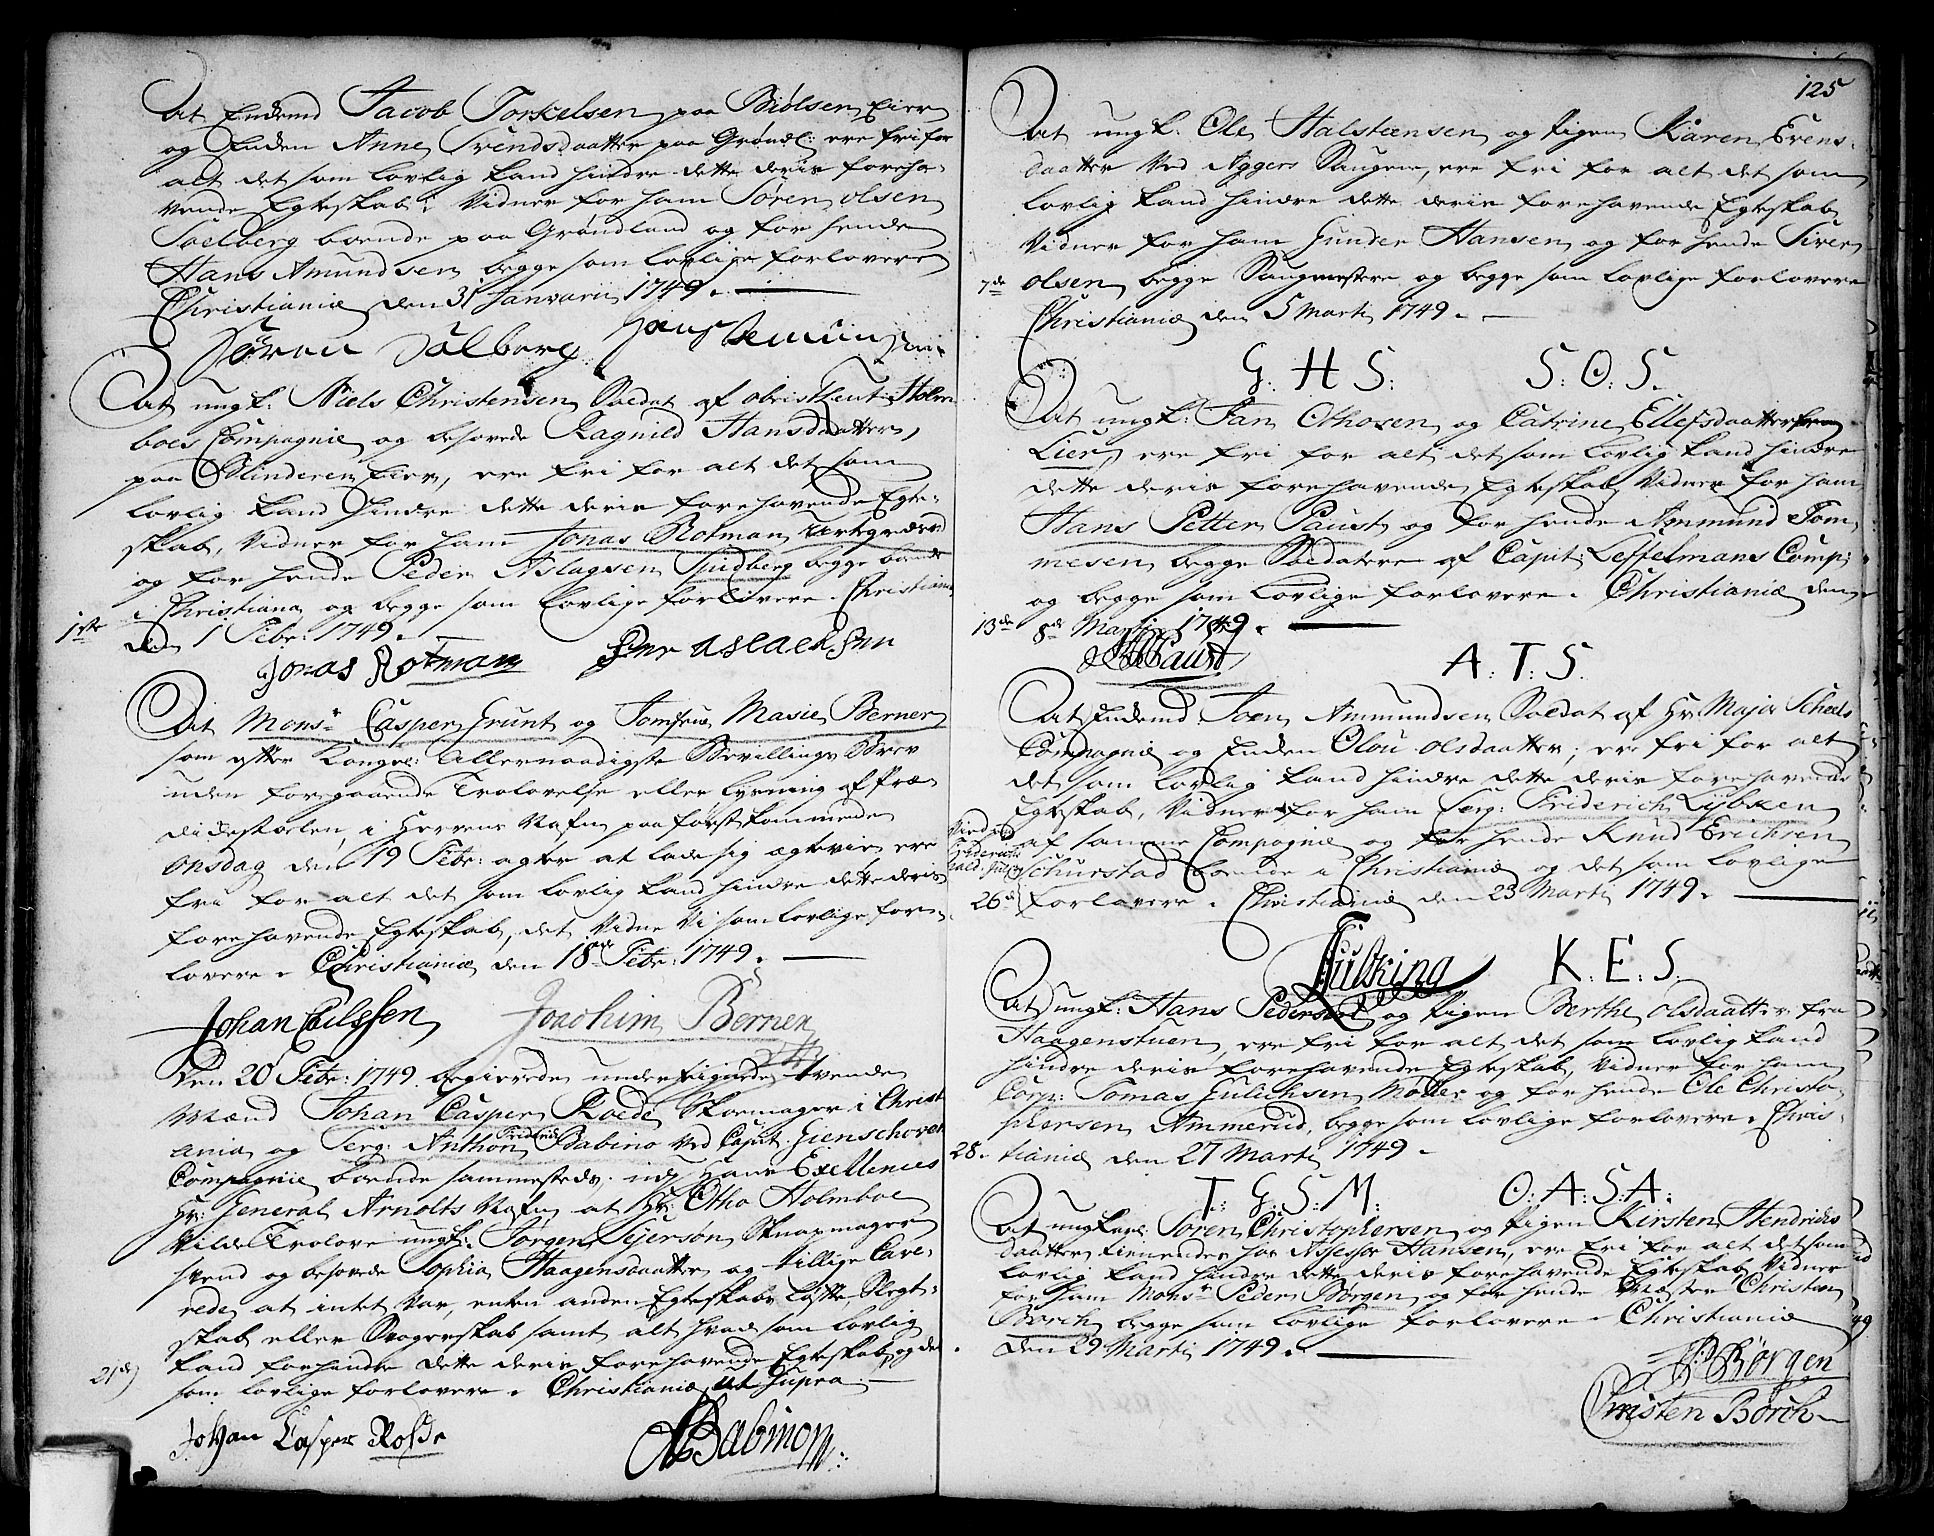 At Enkemd Jacob Torkelsen paa Biølsen Eier
og Enken Anne Svendsdaatter paa Grønl: ere fri for
alt det som lovlig kand hindre dette deris foreha-
vende Egteskab; Vidner for ham Søren olsen
Soelberg boende paa Grønland og for hende
Hans Amundsen begge som lovlige forlovere
Christianiæ den 31 Januarii 1749.
Søren Solberg Hans Amunsen
At ungk: Niels Christensen Soldat af obristLeut: Holm
boes Compagnie og besovede Ragnild Hansdaatter,
paa Blinderen Eier, ere fri for alt det som
lovlig kand hindre dette deris forehavende Egte-
skab, Vidner for ham Jonas Rotman Urtegaards
og for hende Peder Aslagsen Sudberg begge boende
i Christiana og begge som lovlige forlovere. Christiania
1ste den 1 Febr: 1749.
Jonas Rotman Per Aslachsen
At Monsr Casper Grunt og Jomfrue Marie Berner
som efter Kongel: Allernaadigste Bevillings Brev
uden foregaaende Trolovelse eller lysning af Præ-
dickestoelen, i Herrens Nafn paa førstkommende
onsdag den 19 Febr: agter at lade sig ægtevie ere
fri for alt det som lovlig kand hindre dette deris
forehavende Egteskab, det Vidne Vi som lovlige for-
lovere. Christianiæ den 18de Febr: 1749.
Johan Eilssen Joachim Berner
Den 20 Febr: 1749 begierede underskrefne tvende
Mænd Johan Casper Roede Skomager i Christi
ania og Serg: Anthon Fridrich Babino ved Capit: Gienschoves
Compagnie boende sammesteds, udj Hans Exellences
Hr: General Arnolts Nafn at Hr: Otho Holmboe
Vilde Trolove ungk: Jørgen Sejerson Skomager
svend og besovede Sophia Haagensdaatter og tillige Cave-
rede at intet var, enten anden Egteskabs Løfte, Slegt-
skab eller Svogerskab samt alt hvad som lovlig
21de kand forhindre dette deris forehavende Egteskab, og det
som lovlige forlovere. Christianiæ ut Supra
Johan Casper Rohde ABabinon
125
At ungk: Ole Halstensen og Pigen Karen Evens-
daatter Ved Aggers Saugene, ere fri for alt det som
lovlig kand hindre dette deris forehavende Egteskab
Vidner for ham Gunder Hansen og for hende Siver
7de olsen begge Saugmestere og begge som lovlige forlovere
Christianiæ den 5 Martj 1749.
G: H S: S: O: S.
At ungk: Jan Othosen og Catrine Ellefsdaatter fra
Lier, ere fri for alt det som lovlig kand hindre
dette deris forehavende Egteskab Vidner for ham
Hans Petter Paust og for hende Ammund Tom-
mesen begge Soldatere af Capit: Leffelmans Comp:
og begge som lovlige forlovere. Christianiæ den
13de 8de Martj 1749.
HPPaust A: T: S.
At Enkemd Joen Ammundsen Soldat af Hr: Major Scheels
Compagnie og Enken Olou olsdaatter; ere fri for alt
det som lovlig kand hindre dette deris forehavende
Egteskab, Vidner for ham Serg: Friderich Lybken
af samme Compagnie og for hende Knud Erichsen
Schurstad boende i Christianiæ og det som lovlige
26de forlovere. Christianiæ den 23 Martj 1749.
K: E: S.
At ungk: Hans Pedersen og Pigen Berthe olsdaatter fra
Haagenstuen, ere fri for alt det som lovlig kand
hindre deris forehavende Egteskab, Vidner for ham
Corp: Tomas Gulichsen Møller og for hende Ole Christo-
phersen Ammerud, begge som lovlige forlovere. Chris-
28. tianiæ den 27 Martj 1749.
T: G: S: M: O: A: S: A:
At ungkarl Søren Christophersen og Pigen Kirsten Hendrichs
daatter tienende hos Assessor Hansen, ere fri for alt det som
lovlig kand hindre dette deris forehavende Egteskab Vidner
for ham Monsr Peder Børgen og for hende Mæster Christen
Borch begge som lovlige forlovere. Christianiæ
den 29 Martj 1749.
PBörgen
Christen Börch